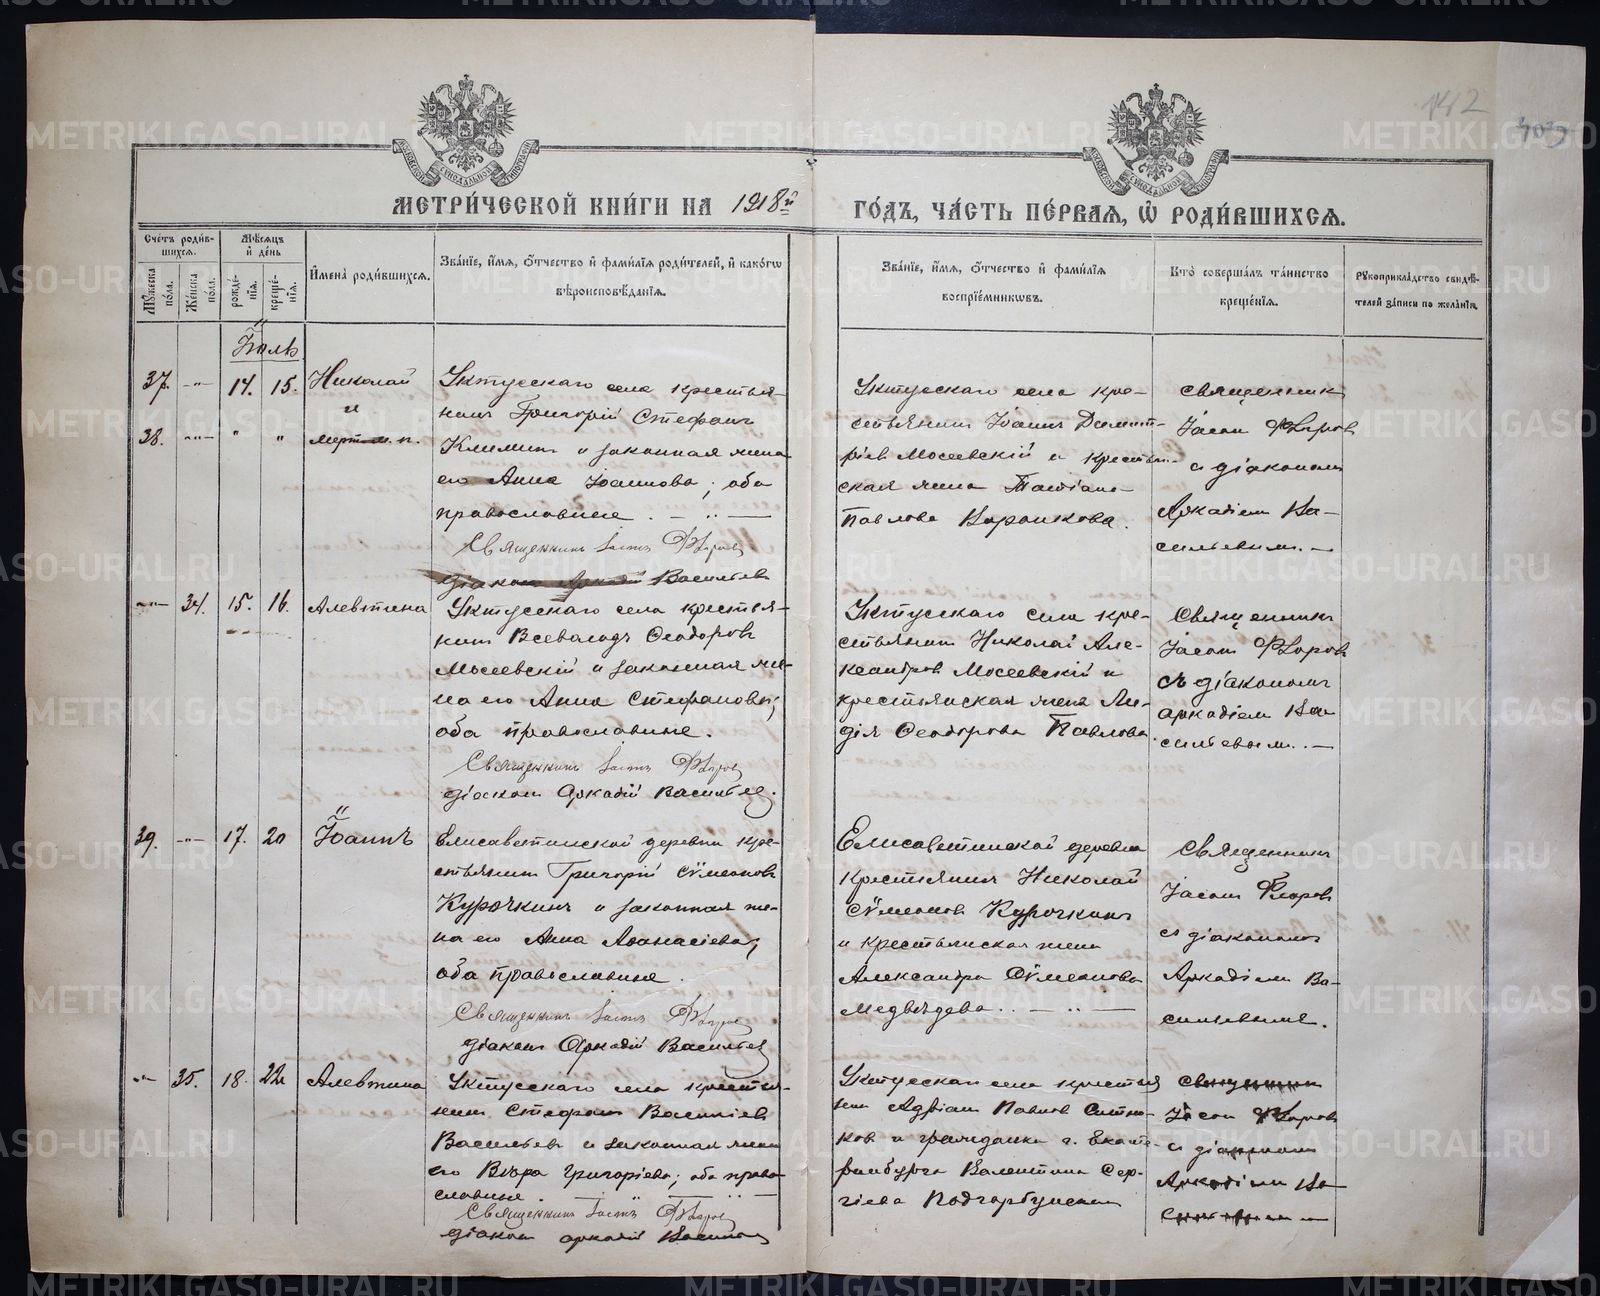 142
403
МЕТРИ́ЧЕСКОЙ КНИ́ГИ НА 1918й
ГО́ДЪ, ЧА́СТЬ ПЕ́РВАЯ, Ѡ РОДИ́ВШИХСЯ.
Сче́тъ роди́в-
шихся.
Му́жеска
по́ла.
Же́нска
по́ла.
Мѣ́сяцъ
и де́нь
рожде́-
нія.
креще́-
нія.
Имена̀ роди́вшихся.
Зва́ніе, и́мя, о́тчество и фами́лія роди́телей, и како́гѡ
вѣроисповѣ́данія.
Зва́ніе, и́мя, о́тчество и фами́лія
воспріе́мниковъ.
Кто̀ соверша́лъ та́инство
креще́нія.
Рукоприкла́дство свидѣ́-
телей за́писи по жела́нію.
Іюль
37. -"- 14. 15. Николай
и
38. -"- " " мерт
Уктусскаго села крестья-
нинъ Григорій Стефановъ
Климинъ и законная жена
его Анна Іоаннова; оба
православные.
Священникъ Іасонъ Флоровъ
діаконъ Аркадій Васильевъ
Уктусскаго села кре-
стьянинъ Іоаннъ Димит-
ріевъ Мосеевскій и крестьян-
ская жена Татіана
Павлова
Священникъ
Іасонъ Флоровъ
съ діакономъ
Аркадіемъ Ва-
сильевымъ.
-"- 34. 15. 16. Алевтина
Уктусскаго села крестья-
нинъ Всеволодъ Ѳеодоровъ
Мосеевскій и законная же-
на его Анна Стефановна;
оба православные.
Священникъ Іасонъ Флоровъ
діаконъ Аркадій Васильевъ.
Уктусскаго села кре-
стьянинъ Николай Але-
ксандровъ Мосеевскій и
крестьянская жена Ли-
дія Ѳеодорова Павлова.
Священникъ
Іасонъ Флоровъ
съ діакономъ
Аркадіемъ Ва-
сильевымъ.
39. -"- 17. 20 Іоаннъ
Елисаветинской деревни кре-
стьянинъ Григорій Сѵмеоновъ
Курочкинъ и законная же-
на его Анна Аѳанасіева;
оба православные.
Священникъ Іасонъ Флоровъ
діаконъ Аркадій Васильевъ
Елисаветинской деревни
крестьянинъ Николай
Сѵмеоновъ Курочкинъ
и крестьянская жена
Александра Сѵмеонова
Медвѣдева.
Священникъ
Іасонъ Флоровъ
съ діакономъ
Аркадіемъ Ва-
сильевымъ.
-"- 35. 18. 22 Алевтина
Уктусскаго села крестья-
нинъ Стефанъ Василіевъ
Васильевъ и законная жена
его Вѣра Григоріева; оба право-
славные.
Священникъ Іасонъ Флоровъ
діаконъ Аркадій Васильевъ
Уктусскаго села крестья
нинъ Адріанъ Павловъ Ситни-
ковъ и гражданка г. Екате-
ринбурга Валентина Сер-
гіева
Священникъ
Іасонъ Флоровъ
съ діакономъ
Аркадіемъ Ва-
сильевымъ